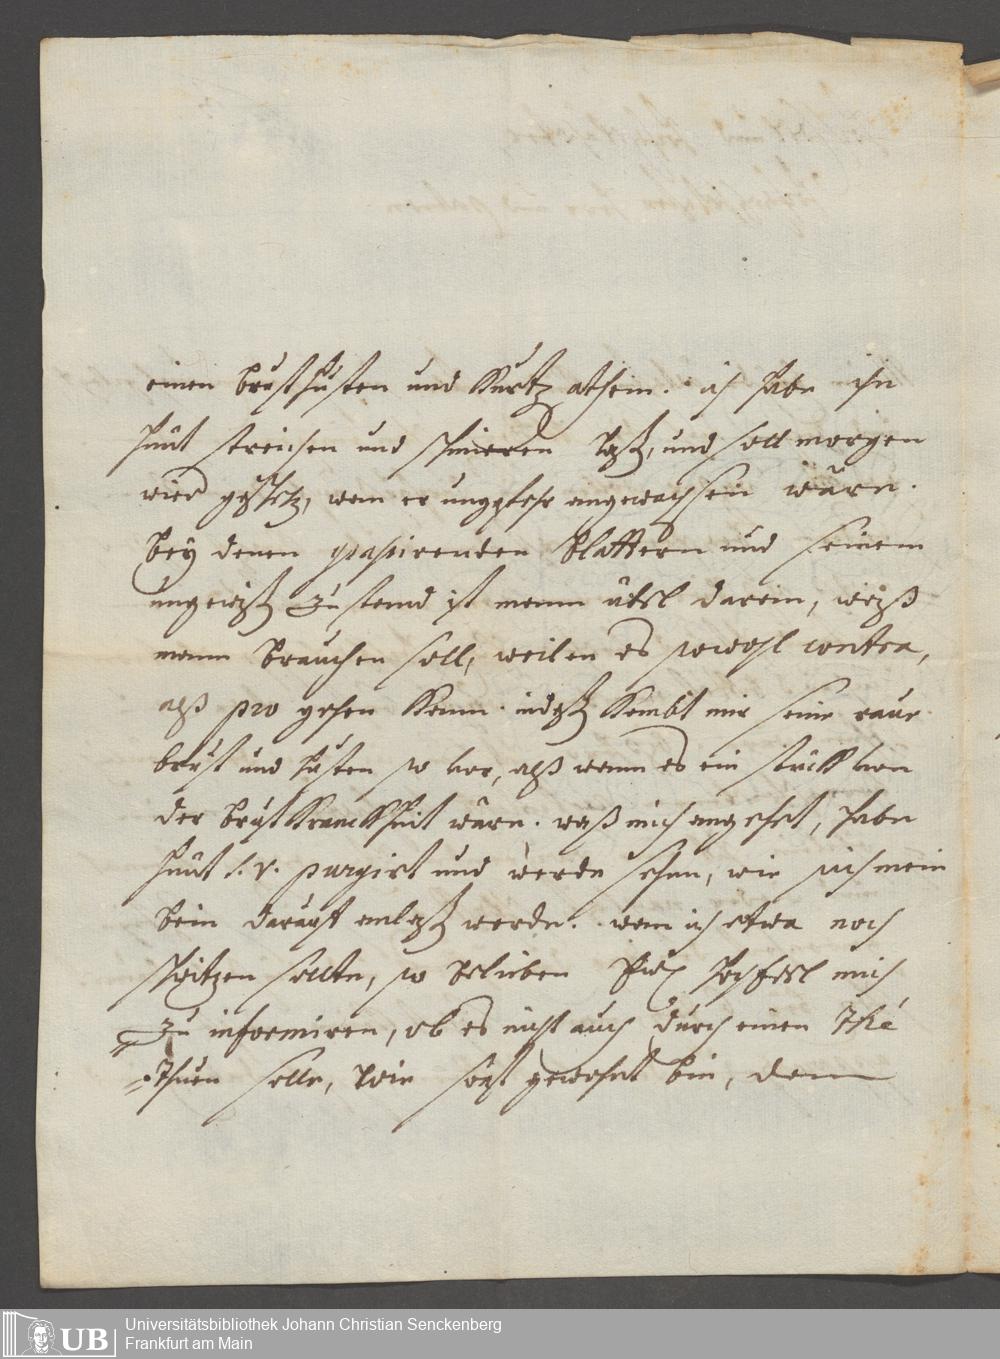 einen brusthusten und kurtz athem. ich habe ihn
heut streichen und schmieren laßen, und soll morgen
wied, wan er ungefehr angewachsen wäre.
bey denen grassirenden blattern und seinem
ungewißen Zustand ist mann übel daran, waß
mann brauchen soll, weilen es sowohl contra,
alß pro gehen kann. indeßen kombt mir seine raue
brust und husten so vor, alß wann es ein stück von
der brustkranckheit wäre. waß mich angehet, habe
heut s. v. purgirt und werde sehen, wie sich mein
bein darauf anlaßen werde. wan ich etwa noch
schwitzen sollte, so belieben mich
Zu informiren, ob es nicht auch durch einen Thé
thuen solle, wie sonst gewohnt bin, dann
UB Universitätsbibliothek Johann Christian Senckenberg
Frankfurt am Main